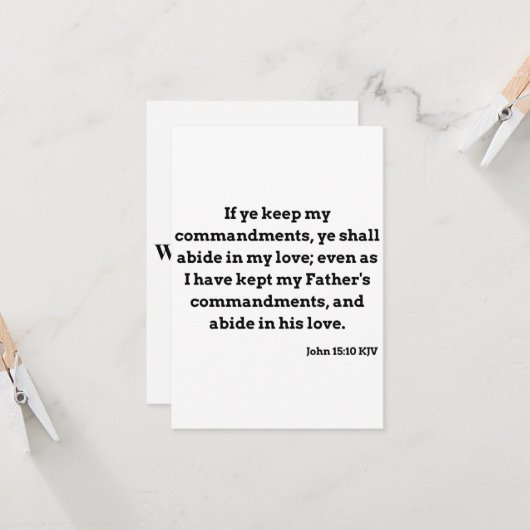 If ye keep my
commandments, ye shall
abide in my love; even as
I have kept my Father's
commandments, and
abide in his love.
John 15:10 KJV
W